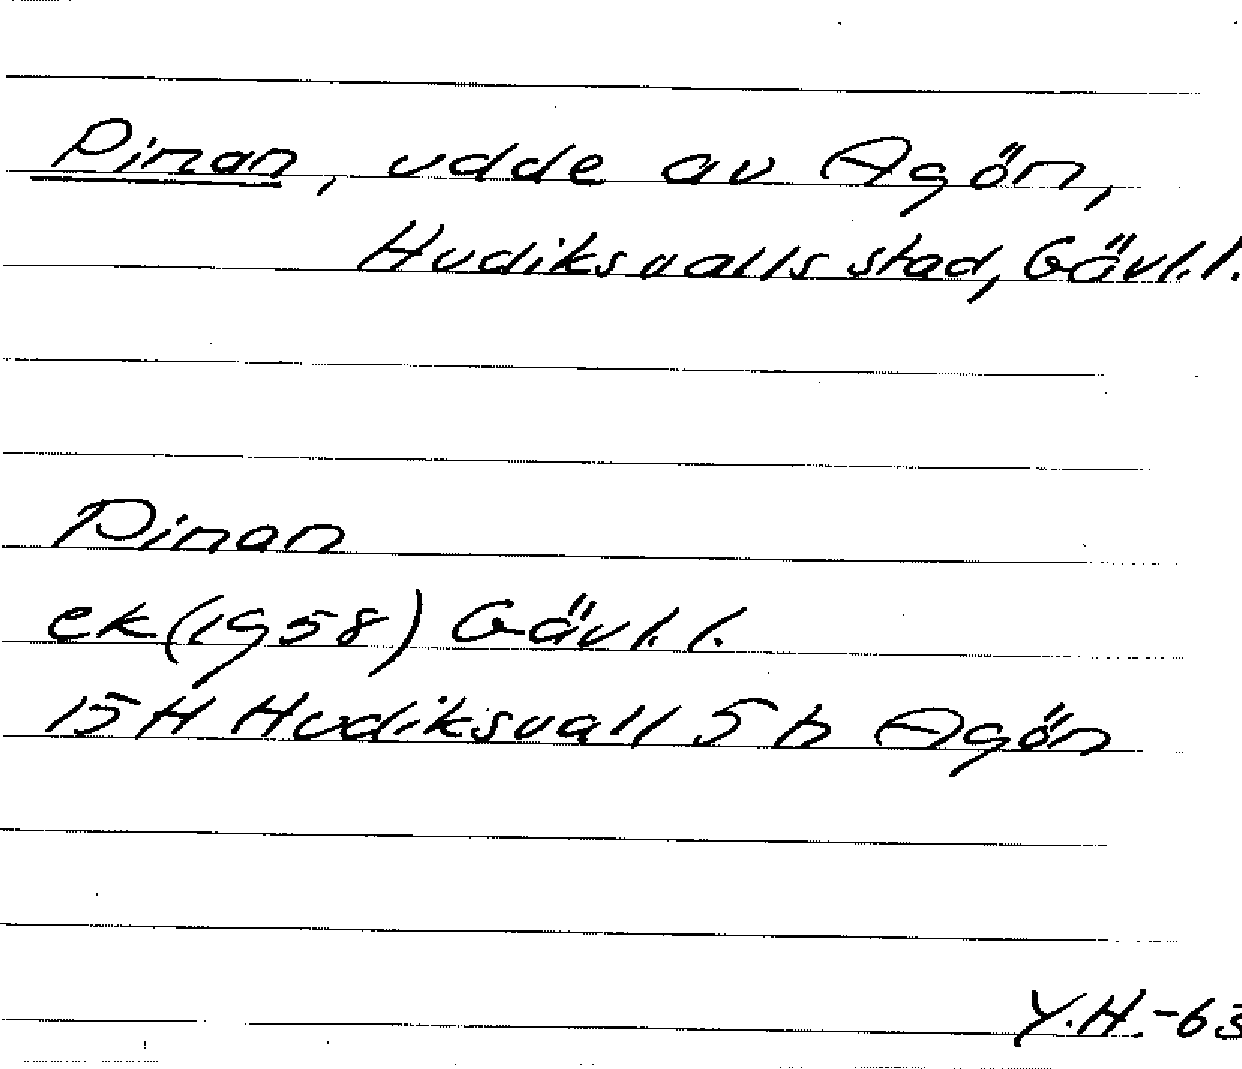 Pinan, udde av Agön,
Hudiksvalls stad, Gävl.l.
Pinan
ek(1958) Gävl.l.
15H Hudiksvall 5h Agön
Y.H.-63